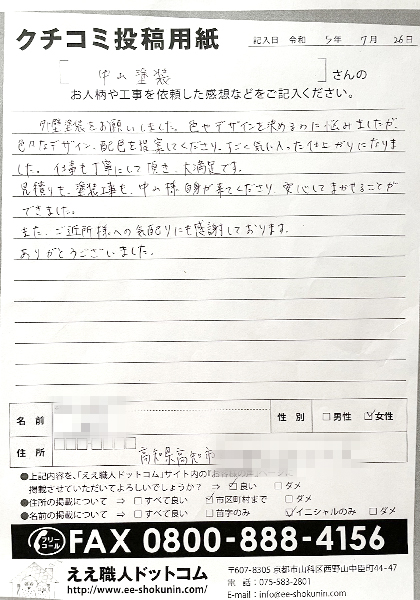 クチコミ投稿用紙
記入日 令和 5年 7月 26日
中山塗装 さんの
お人柄や工事を依頼した感想などをご記入ください。
外壁塗装をお願いしました。色やデザインを決めるのに悩みましたが、
色々なデザイン、配色を提案してくださり、すごく気に入った仕上がりになりま
した。仕事も丁寧にして頂き、大満足です。
見積りも、塗装工事も、中山様自身が来てくださり、安心してまかせることが
できました。
また、ご近所様への気配りにも感謝しております。
ありがとうございました。
名前 性別 □男性 ☑女性
住所 高知県高知市
●上記内容を、「ええ職人ドットコム」サイト内の『お客様の声』ページに
掲載させていただいてよろしいでしょうか? ⇒ ☑良い □ダメ
●住所の掲載について ⇒ □すべて良い ☑市区町村まで □ダメ
●名前の掲載について ⇒ □すべて良い □苗字のみ ☑イニシャルのみ □ダメ
フリーコール FAX 0800-888-4156
ええ職人ドットコム
http://www.ee-shokunin.com/
〒607-8305 京都市山科区西野山中臣町44-47
電話:075-583-2801
E-mail:info@ee-shokunin.com